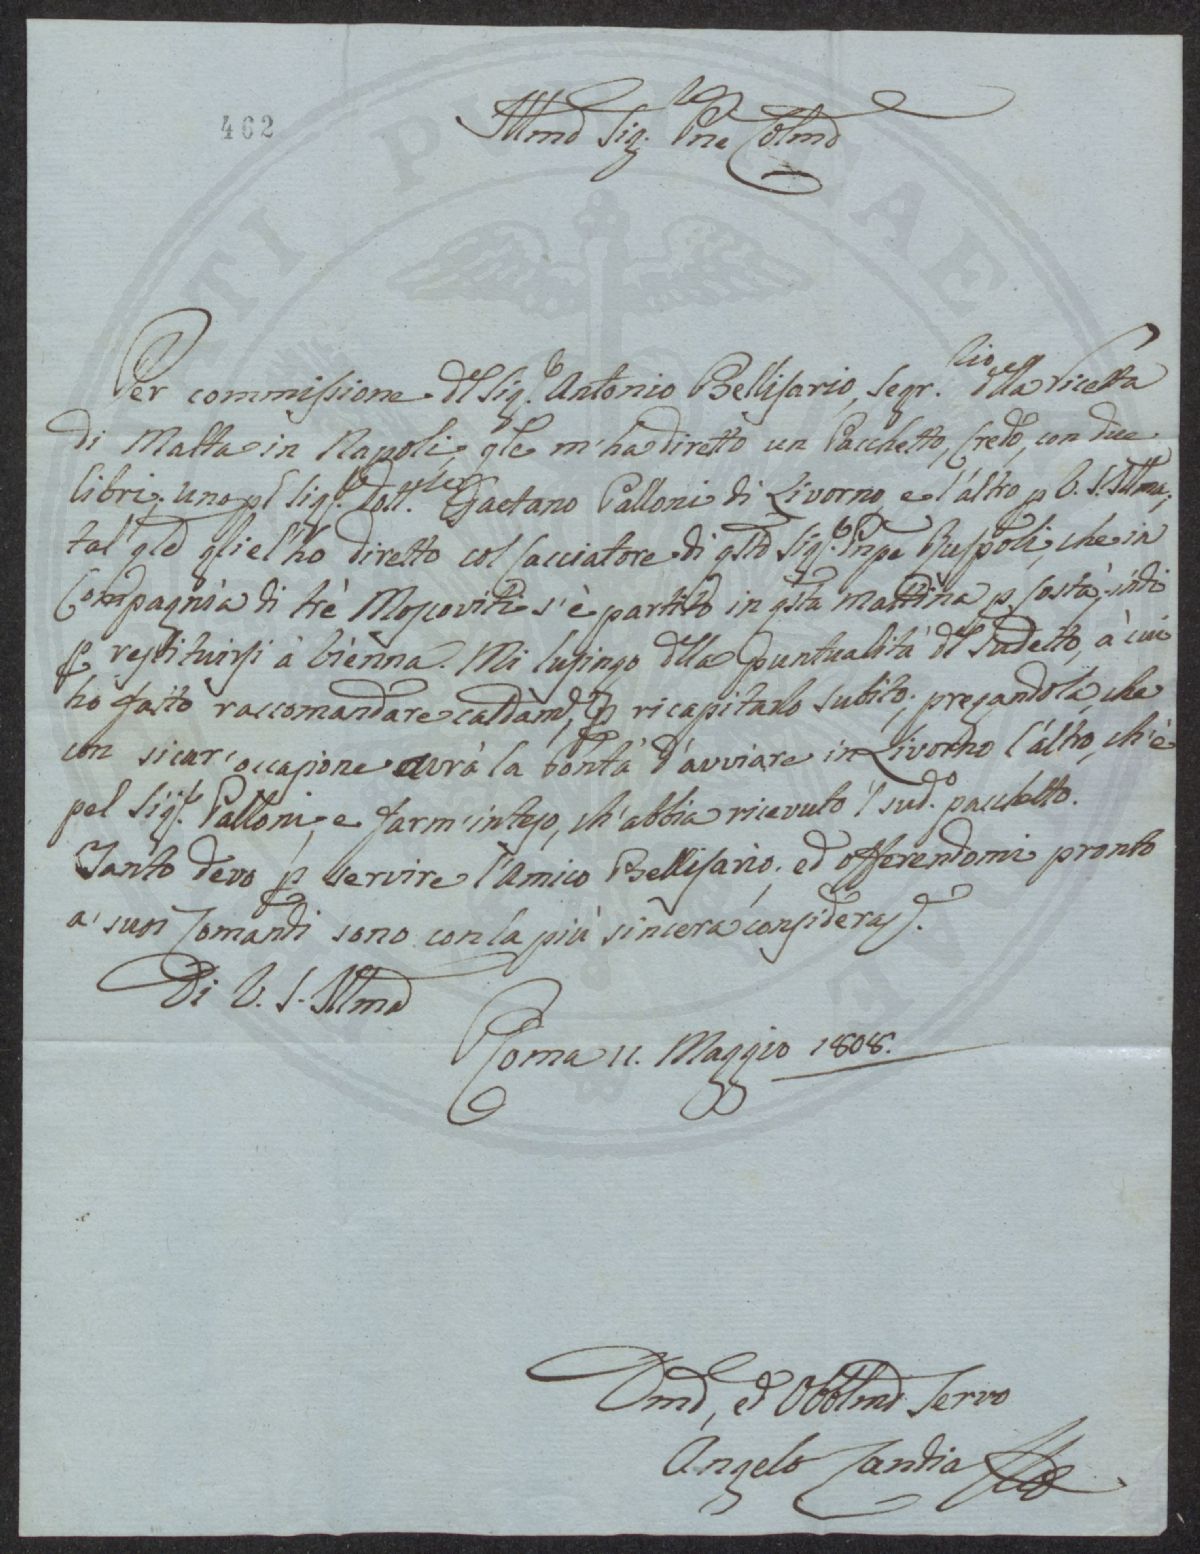 462
Illmo Sig.re Pne Colmo
Per commissione del Sig.r Antonio Bellisario, Segr.rio della Ricetta
di Malta in Napoli, qle m'ha diretto un Pacchetto, credo, con due
libri, uno pel Sig.r Dott.re Gaetano Palloni di Livorno, e l'altro p V. S. Illma;
tal qle gliel'ho diretto col Cacciatore di qsto Sig.r Pnpe Ruspoli, che in
Compagnia di trè Moscoviti s'è partito in qsta mattina p costà, indi
p restituirsi à Vienna. Mi lusingo della puntualità del sudetto, à cui
ho fatto raccomandare caldam.e, p ricapitarlo subito; pregandola, che
con sicur'occasione avrà la bontà d'avviare in Livorno l'altro, ch'è
pel Sig.r Palloni, e farm'inteso, ch'abbia ricevuto 'l sud.o pacchetto.
Tanto devo p servire l'Amico Bellisario; ed offerendomi pronto
a' suoi Comandi sono con la più sincera consideraz.e
Di V. S. Illma
Roma 11. Maggio 1808.
Dmo, ed Obblmo Servo
Angelo Candia